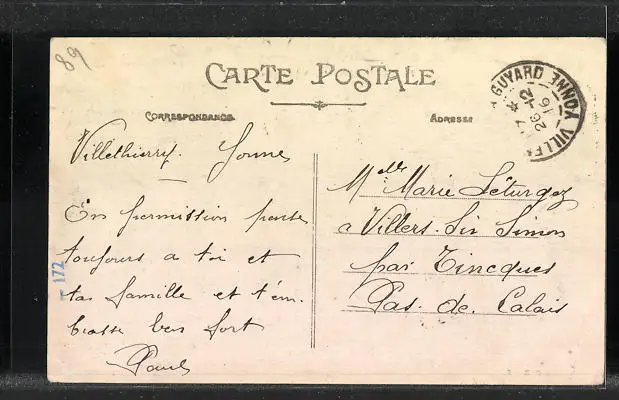 89
CARTE POSTALE
CORRESPONDANCE
ADRESSE
VILLE GUYARD YONNE
* 26-12 16
Villethierry. Yonne
En permission pense
toujours a toi et
tas famille et t'em.
brasse bien fort
Paul
172
Melle Marie Léturgez
a Villers. Sir Simon
par Tincques
Pas. de. Calais